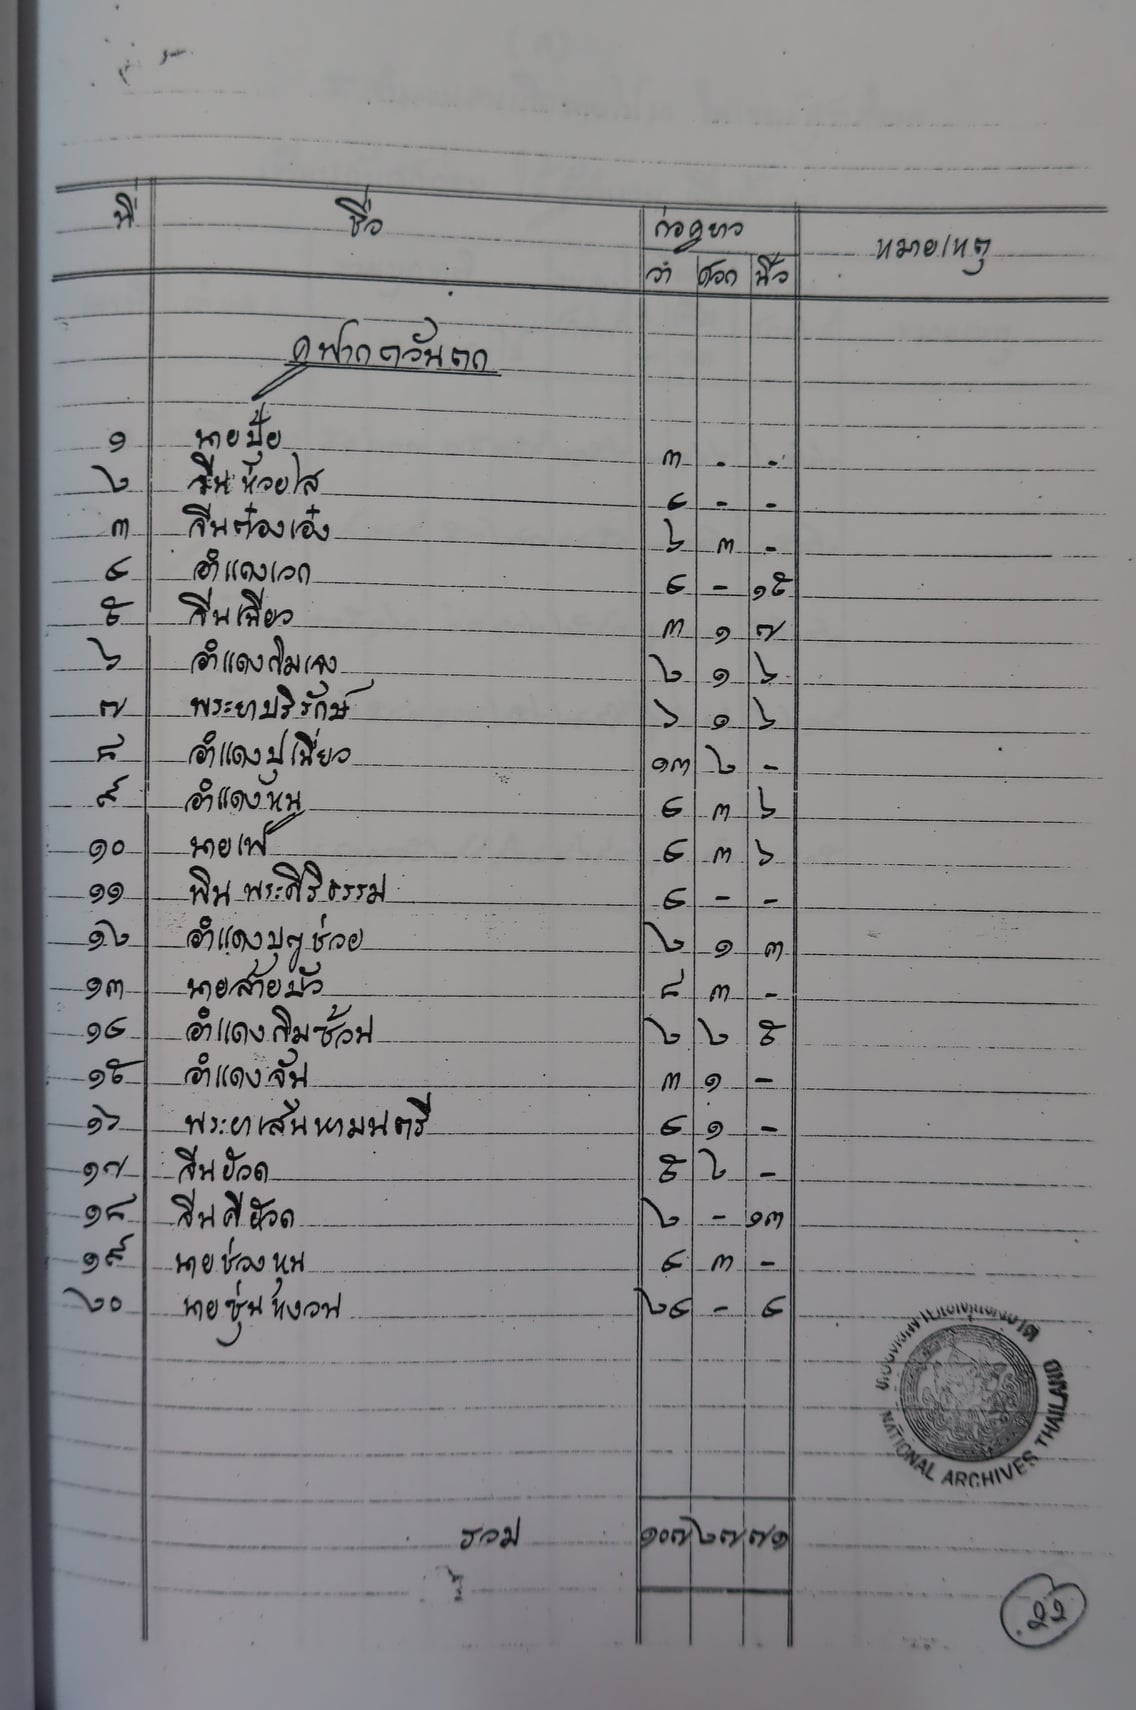 ที่ ชื่อ ก่อยาว หมายเหตุ
วา ศอก นิ้ว
ฟากตวันตก
๑ นายปุ้ย ๓ - -
๒ จีนห้วยไส ๔ - -
๓ จีนต๋องเอ๋ง ๖ ๓ -
๔ อำแดงเวก ๔ - ๑๕
๕ จีนเฉียว ๓ ๑ ๗
๖ อำแดงกิมเจง ๒ ๑ ๖
๗ พระยาบริรักษ์ ๖ ๑ ๖
๘ อำแดงปุเฉี่ยว ๑๓ ๒ -
๙ อำแดงหนู ๔ ๓ ๖
๑๐ นายเฟ ๔ ๓ ๖
๑๑ พิน พระศิริธรรม ๔ - -
๑๒ อำแดงบุญช่วย ๒ ๑ ๓
๑๓ นายสายบัว ๘ ๓ -
๑๔ อำแดงกิมซ้วน ๒ ๒ ๕
๑๕ อำแดงจัน ๓ ๑ -
๑๖ พระยาเสนหามนตรี ๔ ๑ -
๑๗ จีนย้วด ๕ ๒ -
๑๘ จีนศียัวด ๒ - ๑๓
๑๙ นายช่วงหุน ๔ ๓ -
๒๐ นายซุ่นหงวน ๒๔ - ๔
หอจดหมายเหตุแห่งชาติ
NATIONAL ARCHIVES THAILAND
รวม ๑๐๗ ๒๗ ๗๑